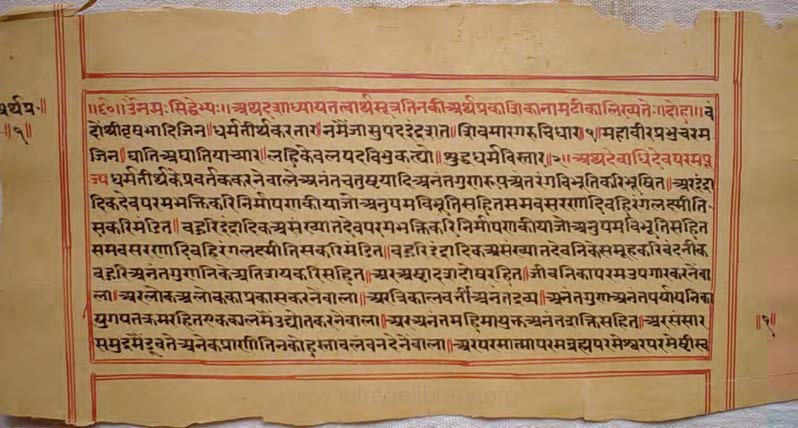 ॥६०॥ उंनमः सिद्धेभ्यः॥ अथदशाध्यायतत्वार्थसूत्रतिनकीअर्थप्रकाशिकानामटीकालिख्यतेः॥दोहा॥वं
दोंश्रीवृषभादिजिन॥धर्मतीर्थकरतार॥नमैंजासुपदइंद्रशत॥शिवमारगरुचिधार॥१॥महावीरप्रभुचरम
जिन॥घातिअघातियाच्यार॥लहिकेवलपदविभुकत्यो॥शुद्धधर्मविस्तार॥२॥अथदेवाधिदेवपरमपू
ज्यधर्मतीर्थकेप्रवर्तककरनेवालेअनंतचतुष्टयादिअनंतगुणरूपअंतरंगविभूतिकरिभूषित॥अरइंद्रा
दिकदेवपरमभक्तिकरिनिर्मापणकीयाजोअनुपमविभूतिसहितसमवसरणादिवहिरंगलक्ष्मीति
सकरिमंडित॥वहुरिइंद्रादिकअसंख्यातदेवपरमभक्तिकरिनिर्मापणकीयाजोअनुपमविभूतिसहित
समवसरणादिवहिरंगलक्ष्मीतिसकरिमंडित॥वहुरिइंद्रादिकअसंख्यातदेवनिकेसमूहकरिवंदनीक
वहुरिअनंतगुणनिकेअतिशयकरिसहित॥अरअष्टादशदोषरहित॥जीवनिकापरमउपगारकरनेवा
ला॥अरलोकअलोककाप्रकासकरनेवाला॥अरत्रिकालवर्तीअनंतद्रव्य॥अनंतगुणअनंतपर्यायनिका
युगपतक्रमरहितएककालमैंउद्योतकरनेवाला॥अरअनंतमहिमायुक्तअनंतशक्तिसहित॥अरसंसार
समुद्रमैंडूवतेअनेकप्राणीतिनकोहस्तावलंवनदेनेवाला॥अरपरमात्मापरमब्रह्मपरमेश्वरपरमेष्टीस्व
अर्थप्र॰॥
॥१॥
॥१॥
www.vitragelibrary.org